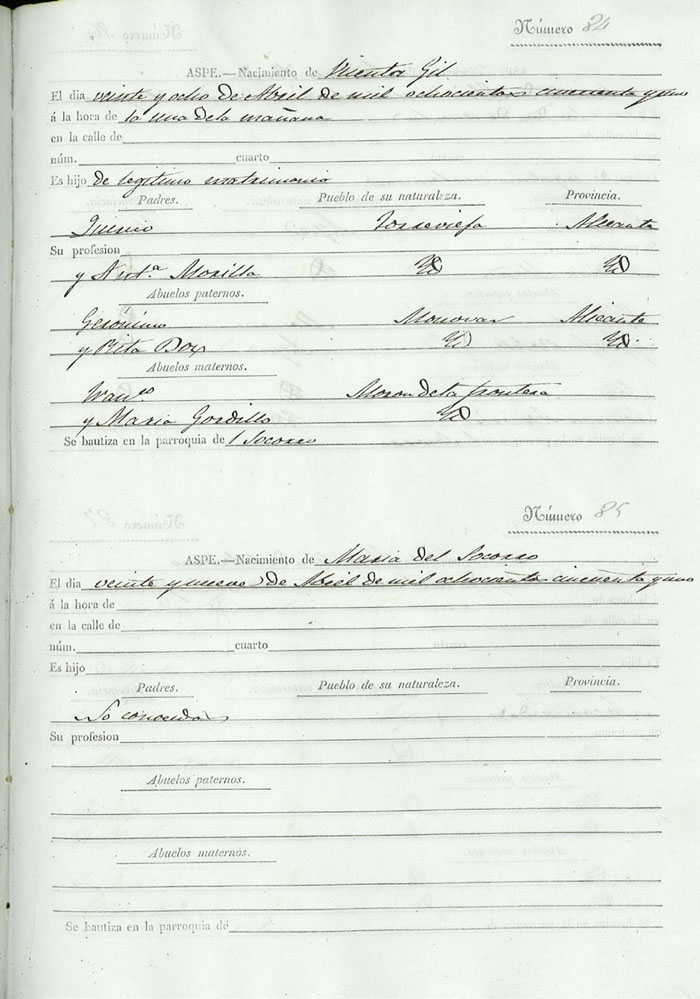 Número 84
ASPE.—Nacimiento de Vicenta Gil
El dia veinte y ocho de Abril de mil ochocientos cincuenta y uno
á la hora de la una de la mañana
en la calle de
núm. cuarto
Es hijo de legitimo matrimonio
Padres. Pueblo de su naturaleza. Provincia.
Torrevieja Alicante
Su profesion
y Ant.ª Morilla Yd Yd
Abuelos paternos.
Geronimo Monovar Alicante
y Rita Yd Yd
Abuelos maternos.
Fran.co Moron de la frontera
y Maria Gordillo Yd
Se bautiza en la parroquia de l Socorro
Número 85
ASPE.—Nacimiento de Maria del Socorro
El dia veinte y nueve de Abril de mil ochocientos cincuenta y uno
á la hora de
en la calle de
núm. cuarto
Es hijo
Padres. Pueblo de su naturaleza. Provincia.
No conocidos
Su profesion
Abuelos paternos.
Abuelos maternos.
Se bautiza en la parroquia dé